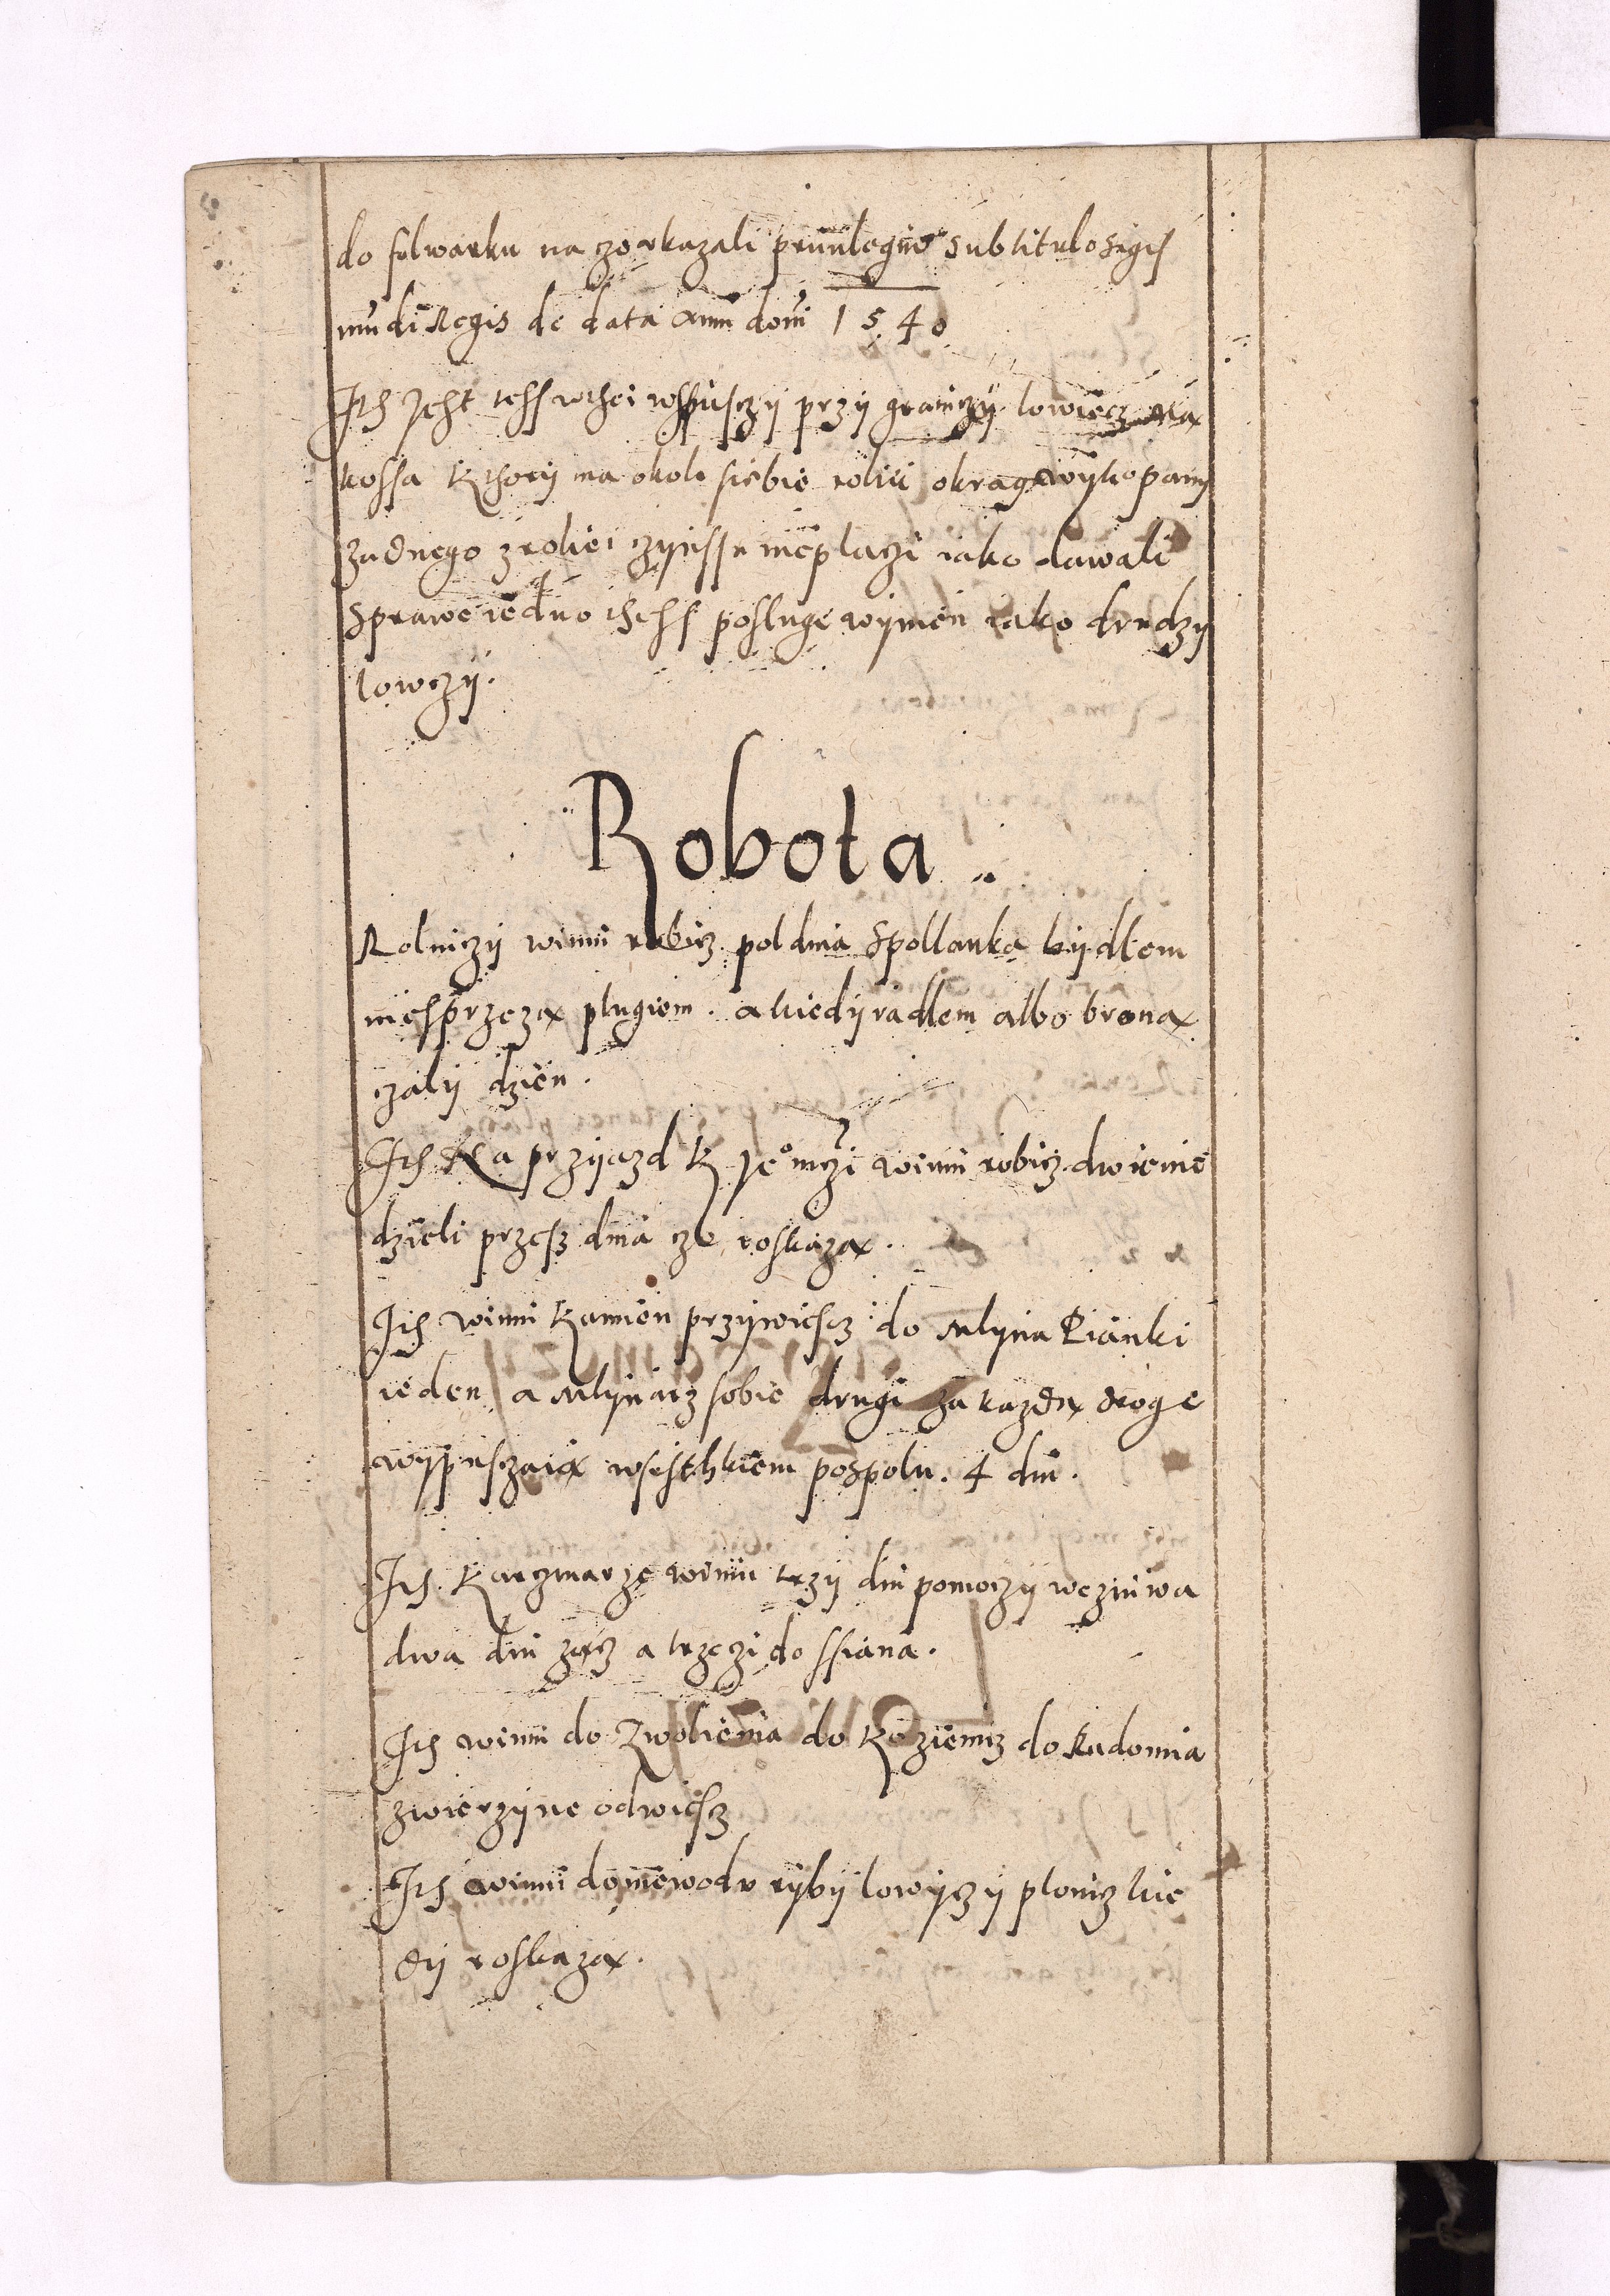 do folwarku na czo okazali priuilegiu sub titulo Sigis
mudi Regis de data anni domi 1540
Ith Jesht tess w thei wsspusczÿ przÿ graniczÿ lowiecz na
kossa kthorÿ ma okolo siebie rolie okrag wÿkopanÿ
zadnego z roliei czynssu nieplaczi iako dawali
sprawe iedno thess posluge wÿmien iako drudzÿ
lowczÿ.
Robota
Rolniczÿ winni robicz pol dnia s pollanka bÿdlem
niesprzezax plugiem. a kiedÿ radlem albo bronax
czalÿ dzien.
Ith Na przÿiazd K Je° mczi winni robicz dwie nie
dzieli przesz dnia czo roskazax.
Ith winni kamien przÿwiescz do mlyna Pianki
ieden a mlÿnarz sobie drugi za kazdx droge
wÿpusczaiax wsisthkiem pospolu. 4 dni.
Ith. karczmarze winni trzÿ dni pomoczÿ we zniwa
dwa dni zącz a trzeczi do ssiana.
Ith winni do Zwolienia do Kozienicz do Radomia
zwierzÿne odwiescz
Ith winni do niewodu rÿbÿ lowÿcz ÿ plonicz kie
dÿ roskazax.